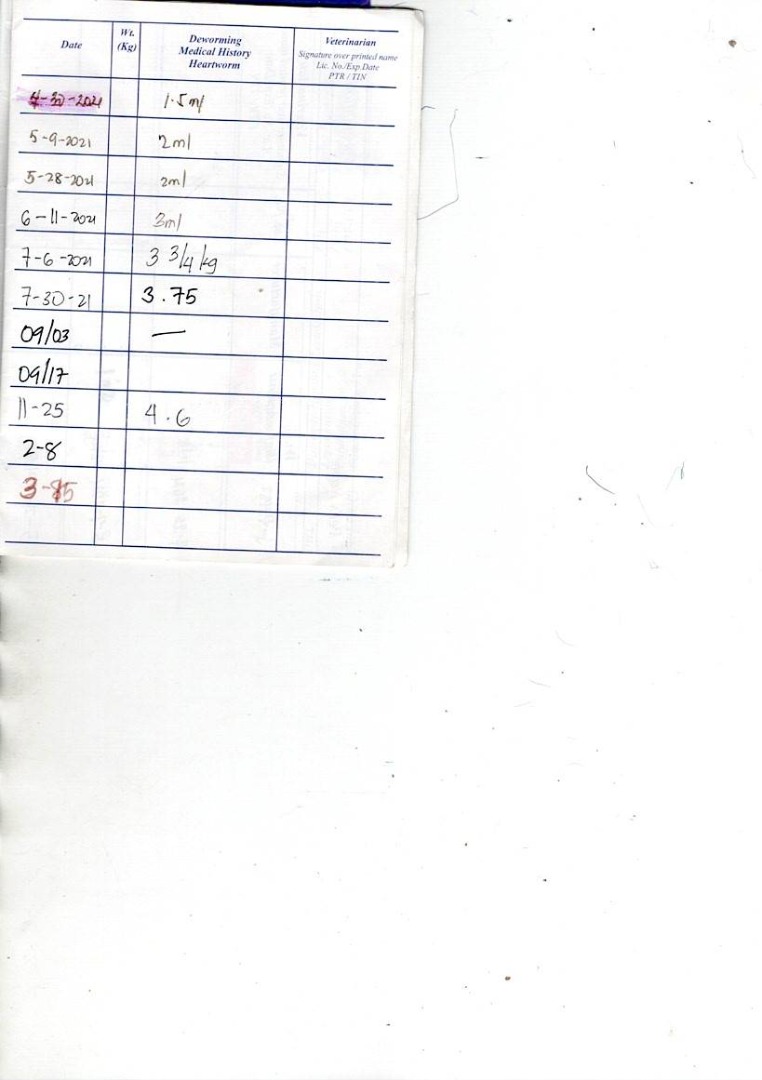 Date Wt. (Kg) Deworming Medical History Heartworm Veterinarian Signature over printed name Lic. No./Exp.Date PTR / TIN
4-30-2021 1.5ml
5-9-2021 2ml
5-28-2021 2ml
6-11-2021 3ml
7-6-2021 3 3/4 kg
7-30-21 3.75
09/03 —
09/17
11-25 4.6
2-8